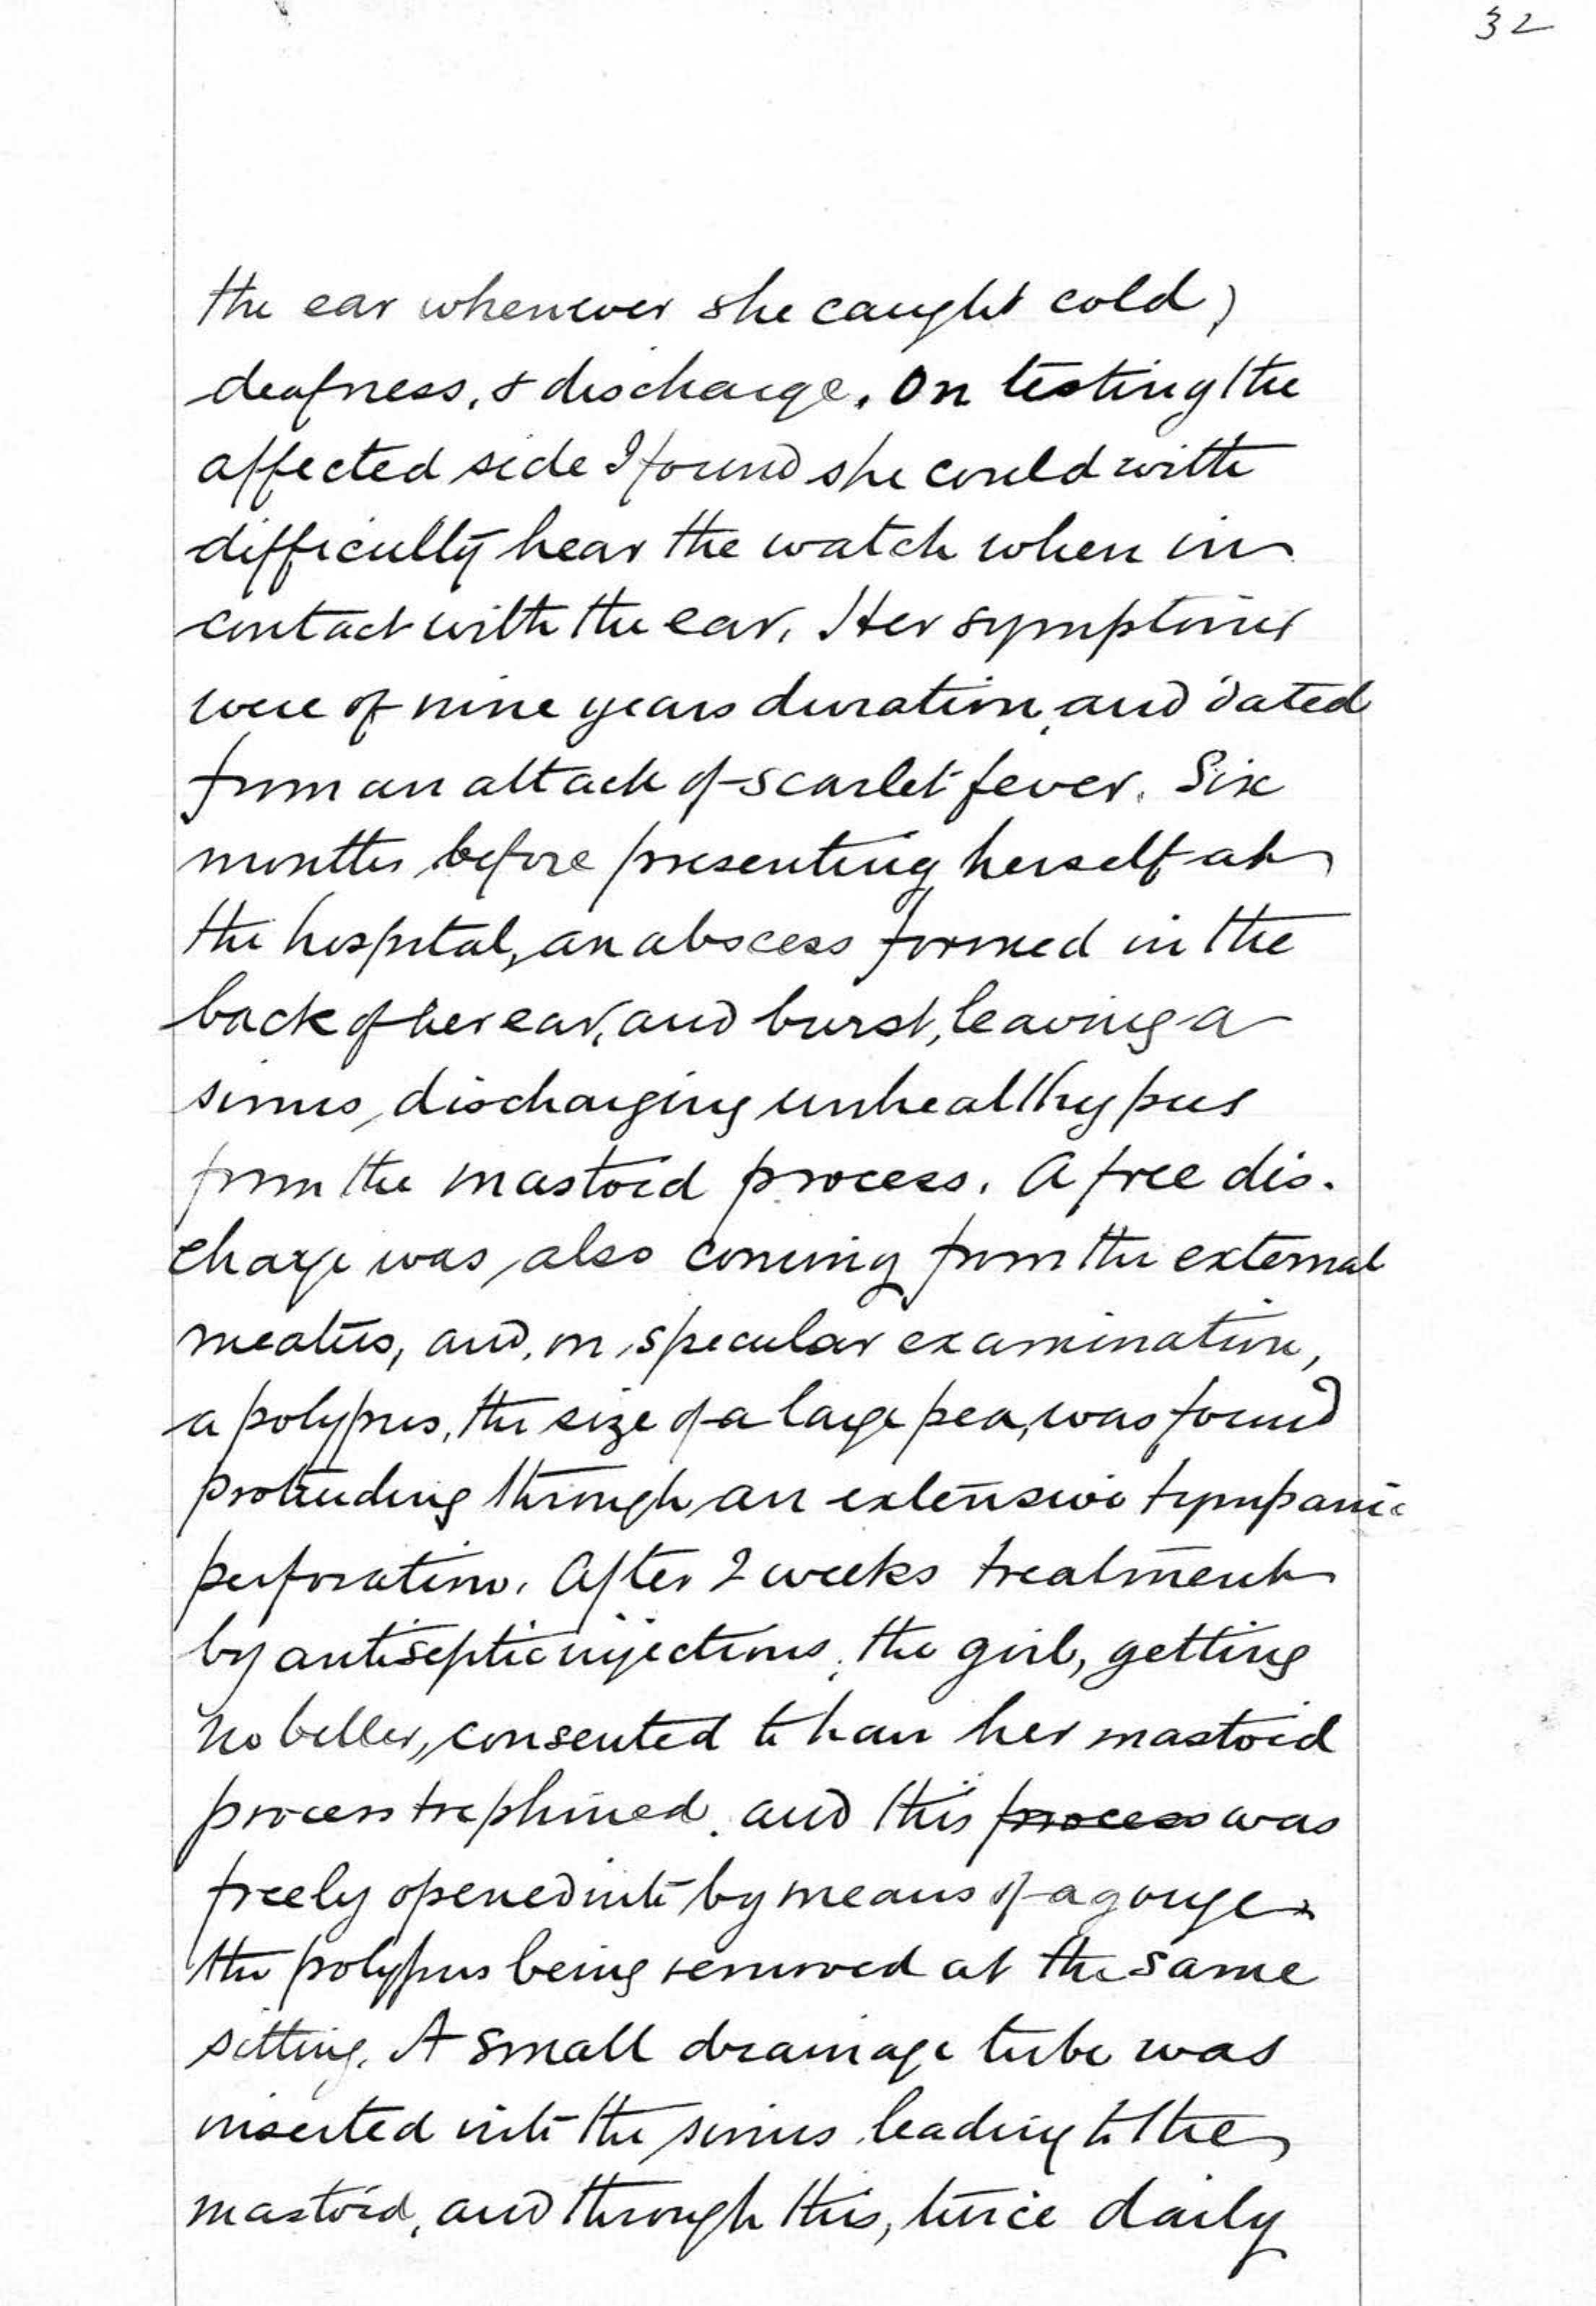 32
the ear whenever she caught cold,
deafness, & discharge. On testing the
affected side I found she could with
difficulty hear the watch when in
contact with the ear. Her symptoms
were of nine years duration, and dated
from an attack of scarlet fever. Six
months before presenting herself at
the hospital, an abscess formed in the
back of her ear, and burst, leaving a
sinus, discharging unhealthy pus
from the mastoid process. A free dis-
charge was also coming from the external
meatus, and, on specular examination,
a polypus, the size of a large pea, was found
protruding through an extensive tympanic
perforation. After 2 weeks treatment
by antiseptic injections, the girl, getting
no better, consented to have her mastoid
process trephined, and this process was
freely opened into by means of a gouge
the polypus being removed at the same
sitting. A small drainage tube was
inserted into the sinus leading to the
mastoid, and through this, twice daily